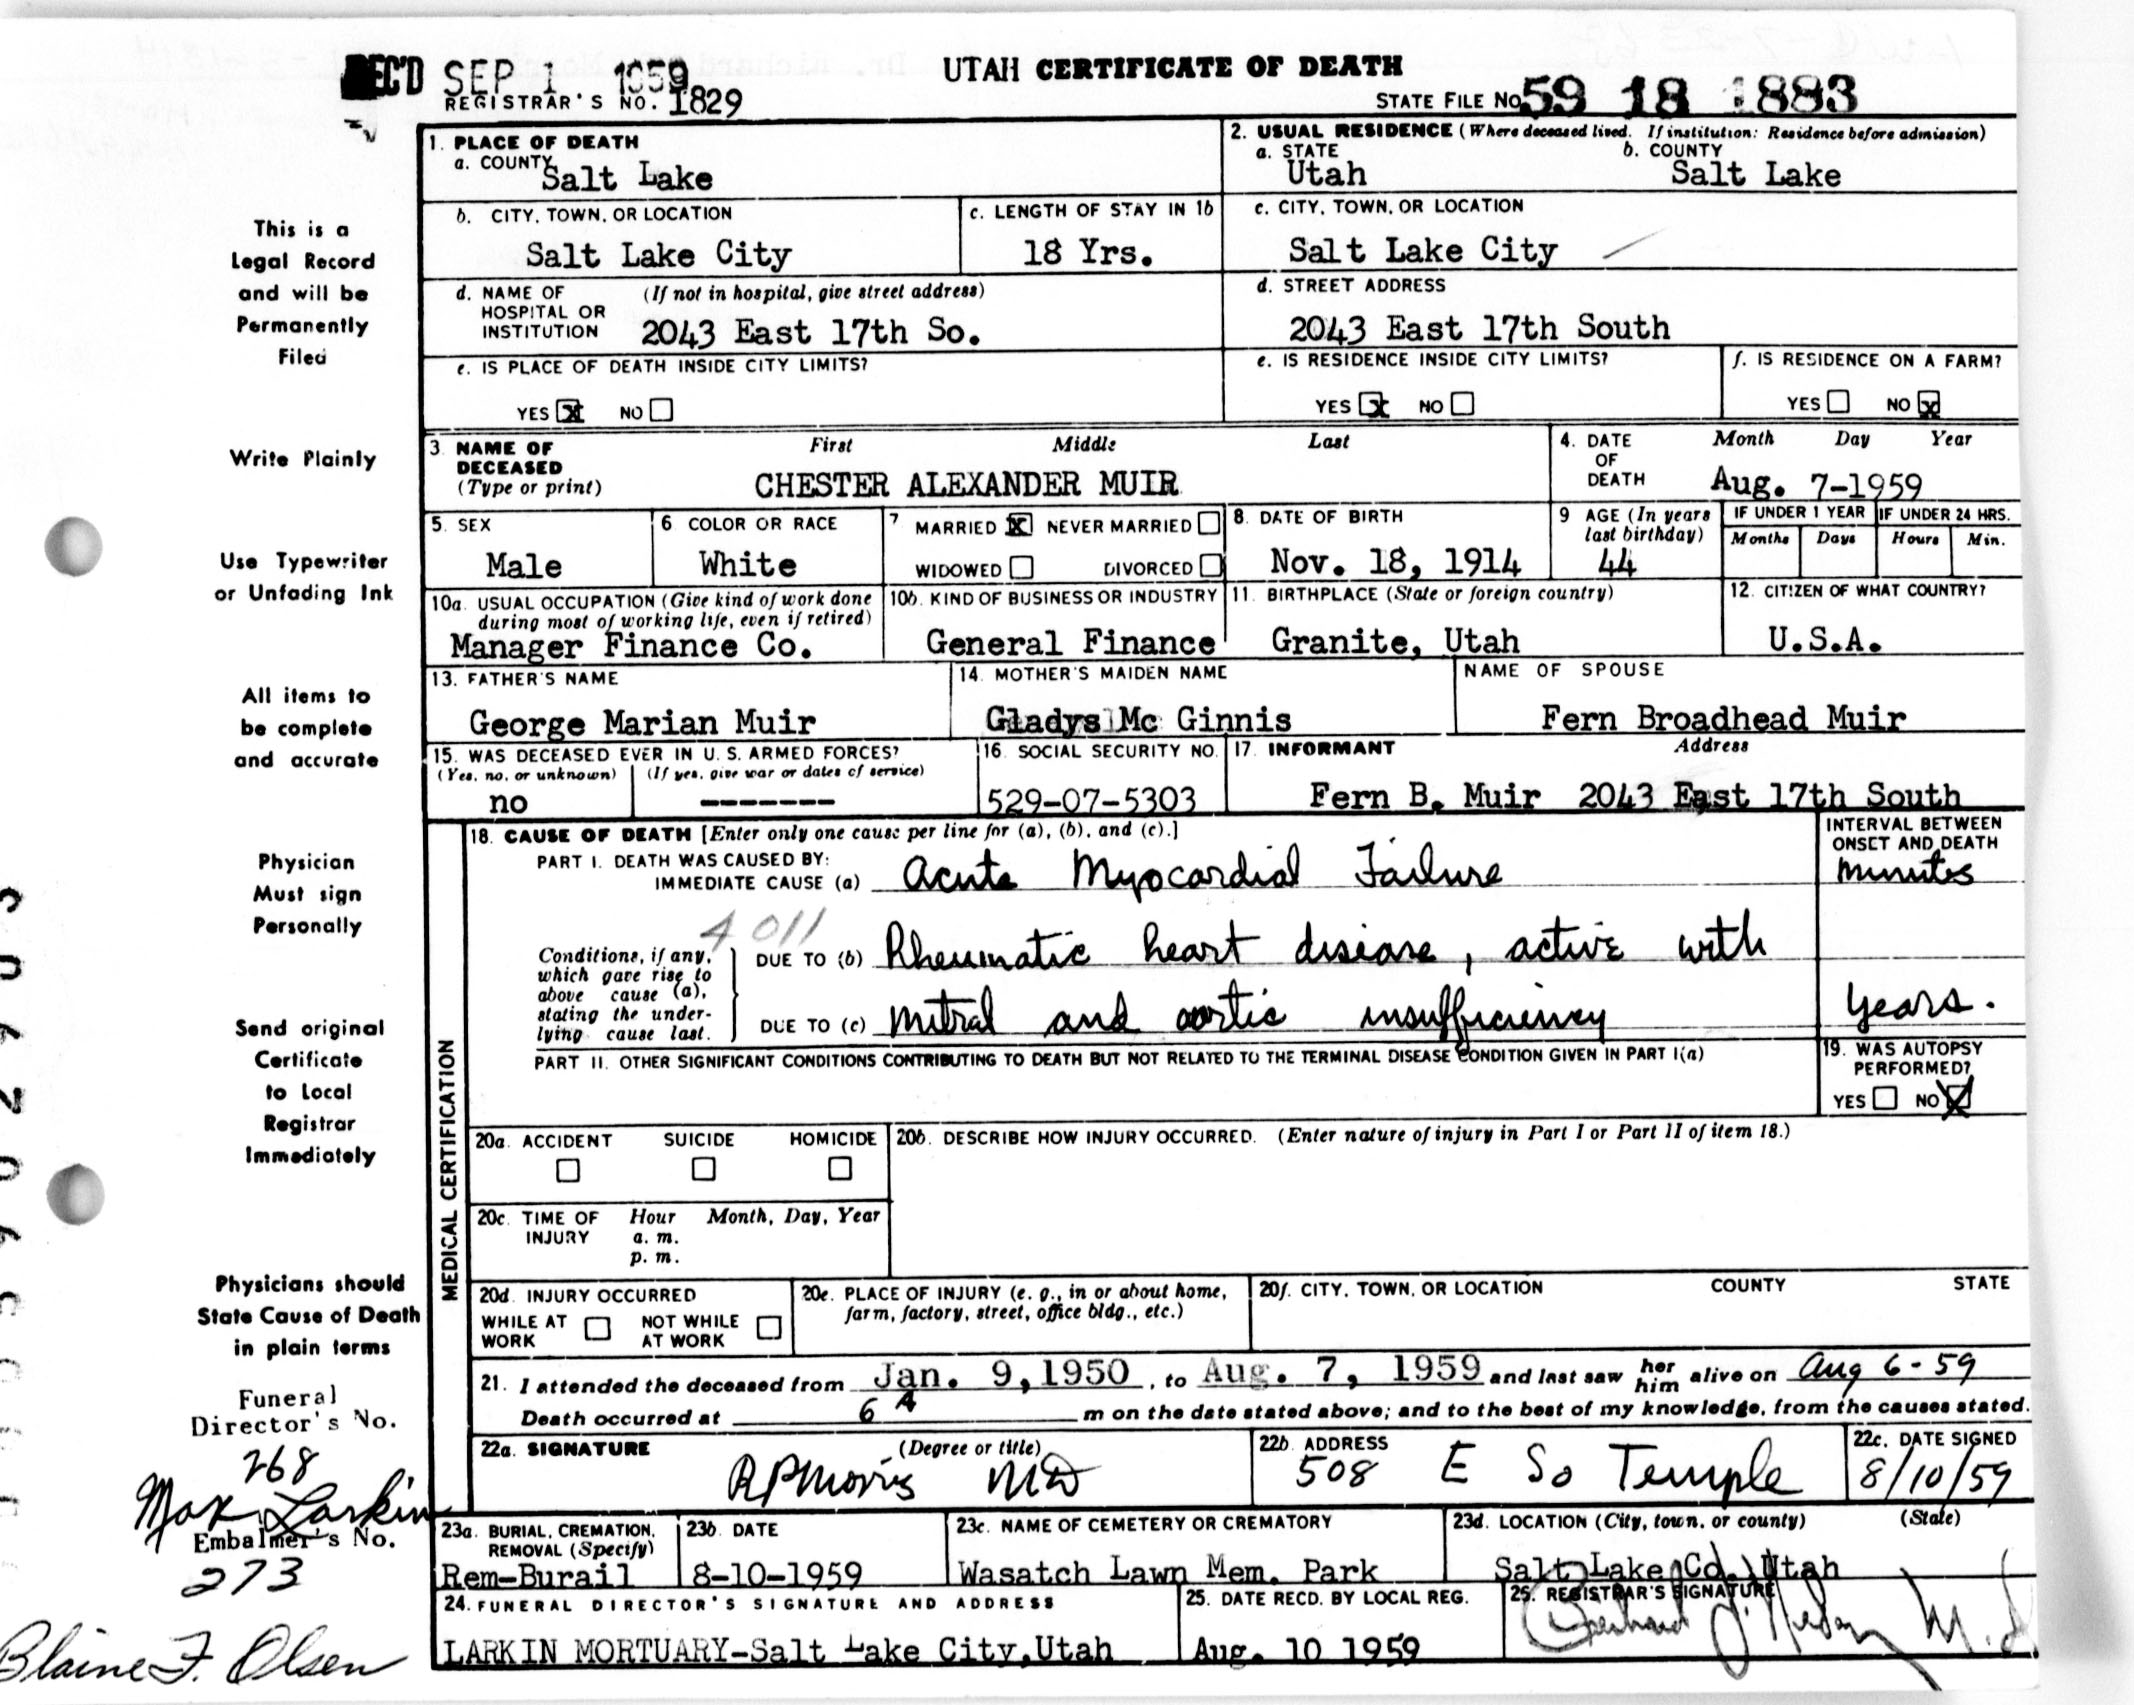 REC'D SEP 1 1959
REGISTRAR'S NO. 1829
UTAH CERTIFICATE OF DEATH
STATE FILE NO. 59 18 1883
This is a
Legal Record
and will be
Permanently
Filed
Write Plainly
Use Typewriter
or Unfading Ink
All items to
be complete
and accurate
Physician
Must sign
Personally
Send original
Certificate
to Local
Registrar
Immediately
Physicians should
State Cause of Death
in plain terms
Funeral
Director's No.
268
Max Larkin
Embalmer's No.
273
Blaine F. Olsen
1. PLACE OF DEATH
a. COUNTY Salt Lake
2. USUAL RESIDENCE (Where deceased lived. If institution: Residence before admission)
a. STATE Utah b. COUNTY Salt Lake
b. CITY, TOWN, OR LOCATION Salt Lake City
c. LENGTH OF STAY IN 1b 18 Yrs.
c. CITY, TOWN, OR LOCATION Salt Lake City
d. NAME OF HOSPITAL OR INSTITUTION (If not in hospital, give street address) 2043 East 17th So.
d. STREET ADDRESS 2043 East 17th South
e. IS PLACE OF DEATH INSIDE CITY LIMITS?
YES x NO
e. IS RESIDENCE INSIDE CITY LIMITS?
YES x NO
f. IS RESIDENCE ON A FARM?
YES NO x
3. NAME OF DECEASED (Type or print) First Middle Last
CHESTER ALEXANDER MUIR
4. DATE OF DEATH Month Day Year
Aug. 7-1959
5. SEX Male
6 COLOR OR RACE White
7 MARRIED x NEVER MARRIED
WIDOWED DIVORCED
8. DATE OF BIRTH Nov. 18, 1914
9 AGE (In years last birthday) 44
IF UNDER 1 YEAR Months Days
IF UNDER 24 HRS. Hours Min.
10a. USUAL OCCUPATION (Give kind of work done during most of working life, even if retired)
Manager Finance Co.
10b. KIND OF BUSINESS OR INDUSTRY General Finance
11. BIRTHPLACE (State or foreign country) Granite, Utah
12. CITIZEN OF WHAT COUNTRY? U.S.A.
13. FATHER'S NAME George Marian Muir
14. MOTHER'S MAIDEN NAME Gladys Mc Ginnis
NAME OF SPOUSE Fern Broadhead Muir
15. WAS DECEASED EVER IN U. S. ARMED FORCES?
(Yes, no, or unknown) no (If yes, give war or dates of service) -------
16. SOCIAL SECURITY NO. 529-07-5303
17. INFORMANT Address
Fern B. Muir 2043 East 17th South
MEDICAL CERTIFICATION
18. CAUSE OF DEATH [Enter only one cause per line for (a), (b), and (c).]
INTERVAL BETWEEN ONSET AND DEATH
PART I. DEATH WAS CAUSED BY:
IMMEDIATE CAUSE (a) Acute Myocardial Failure minutes
4011
Conditions, if any, which gave rise to above cause (a), stating the underlying cause last.
DUE TO (b) Rheumatic heart disease, active with
DUE TO (c) mitral and aortic insufficiency years.
PART II. OTHER SIGNIFICANT CONDITIONS CONTRIBUTING TO DEATH BUT NOT RELATED TO THE TERMINAL DISEASE CONDITION GIVEN IN PART I(a)
19. WAS AUTOPSY PERFORMED?
YES NO X
20a. ACCIDENT SUICIDE HOMICIDE
20b. DESCRIBE HOW INJURY OCCURRED. (Enter nature of injury in Part I or Part II of item 18.)
20c. TIME OF INJURY Hour Month, Day, Year
a. m.
p. m.
20d. INJURY OCCURRED
WHILE AT WORK NOT WHILE AT WORK
20e. PLACE OF INJURY (e. g., in or about home, farm, factory, street, office bldg., etc.)
20f. CITY, TOWN, OR LOCATION COUNTY STATE
21. I attended the deceased from Jan. 9, 1950, to Aug. 7, 1959 and last saw her him alive on Aug 6-59
Death occurred at 6 A m on the date stated above; and to the best of my knowledge, from the causes stated.
22a. SIGNATURE (Degree or title)
RPMorris MD
22b. ADDRESS 508 E So Temple
22c. DATE SIGNED 8/10/59
23a. BURIAL, CREMATION, REMOVAL (Specify) Rem-Burail
23b. DATE 8-10-1959
23c. NAME OF CEMETERY OR CREMATORY Wasatch Lawn Mem. Park
23d. LOCATION (City, town, or county) (State)
Salt Lake Co. Utah
24. FUNERAL DIRECTOR'S SIGNATURE AND ADDRESS
LARKIN MORTUARY-Salt Lake City, Utah
25. DATE RECD. BY LOCAL REG. Aug. 10 1959
26. REGISTRAR'S SIGNATURE